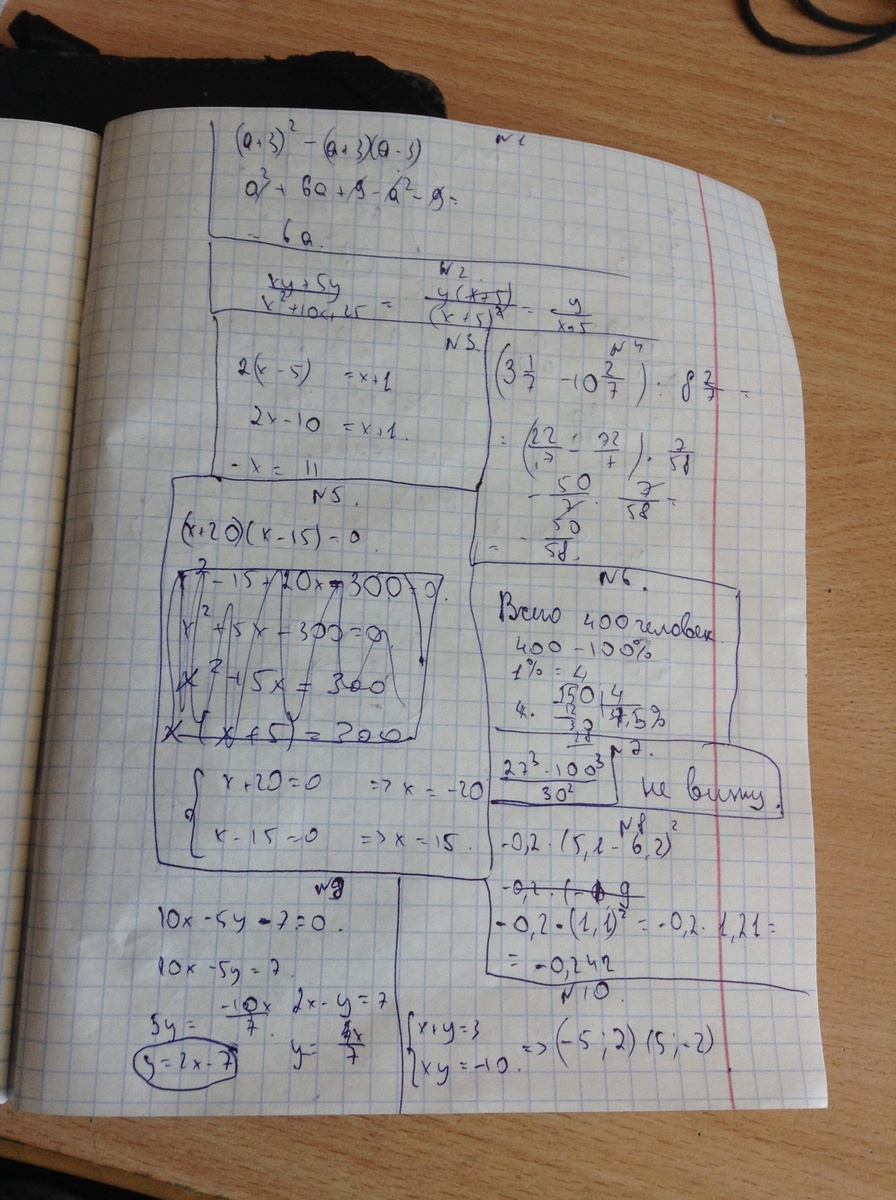 N1
(a+3)² - (a+3)(a-3)
a² + 6a + 9 - a² - 9 =
= 6a.
N2.
xy+5y / x²+10x+25 = y(x+5) / (x+5)² = y / x+5
N3.
2(x-5) = x+1
2x-10 = x+1.
-x = 11
N4
(3 1/7 - 10 2/7) : 8 2/7 =
= (22/7 - 72/7) · 7/58
- 50/7 · 7/58 =
= - 50/58.
N5.
(x+20)(x-15)=0.
x² - 15 + 20x - 300 = 0.
x² + 5x - 300 = 0
x² + 5x = 300
x (x+5) = 300
x+20=0 => x = -20
x-15=0 => x = 15.
N6.
Всего 400 человек
400 - 100%
1% = 4
150 4
12 37,5%
30
28
N7.
27³ · 100³ / 30²
не вижу.
N8
-0,2 · (5,1 - 6,2)²
-0,2 · (1,1)² = -0,2 · 1,21 =
= -0,242
N9
10x - 5y - 7 = 0.
10x - 5y = 7.
5y = -10x / 7. 2x - y = 7
y = 2x - 7
N10.
x+y=3
xy=-10. => (-5; 2) (5; -2)